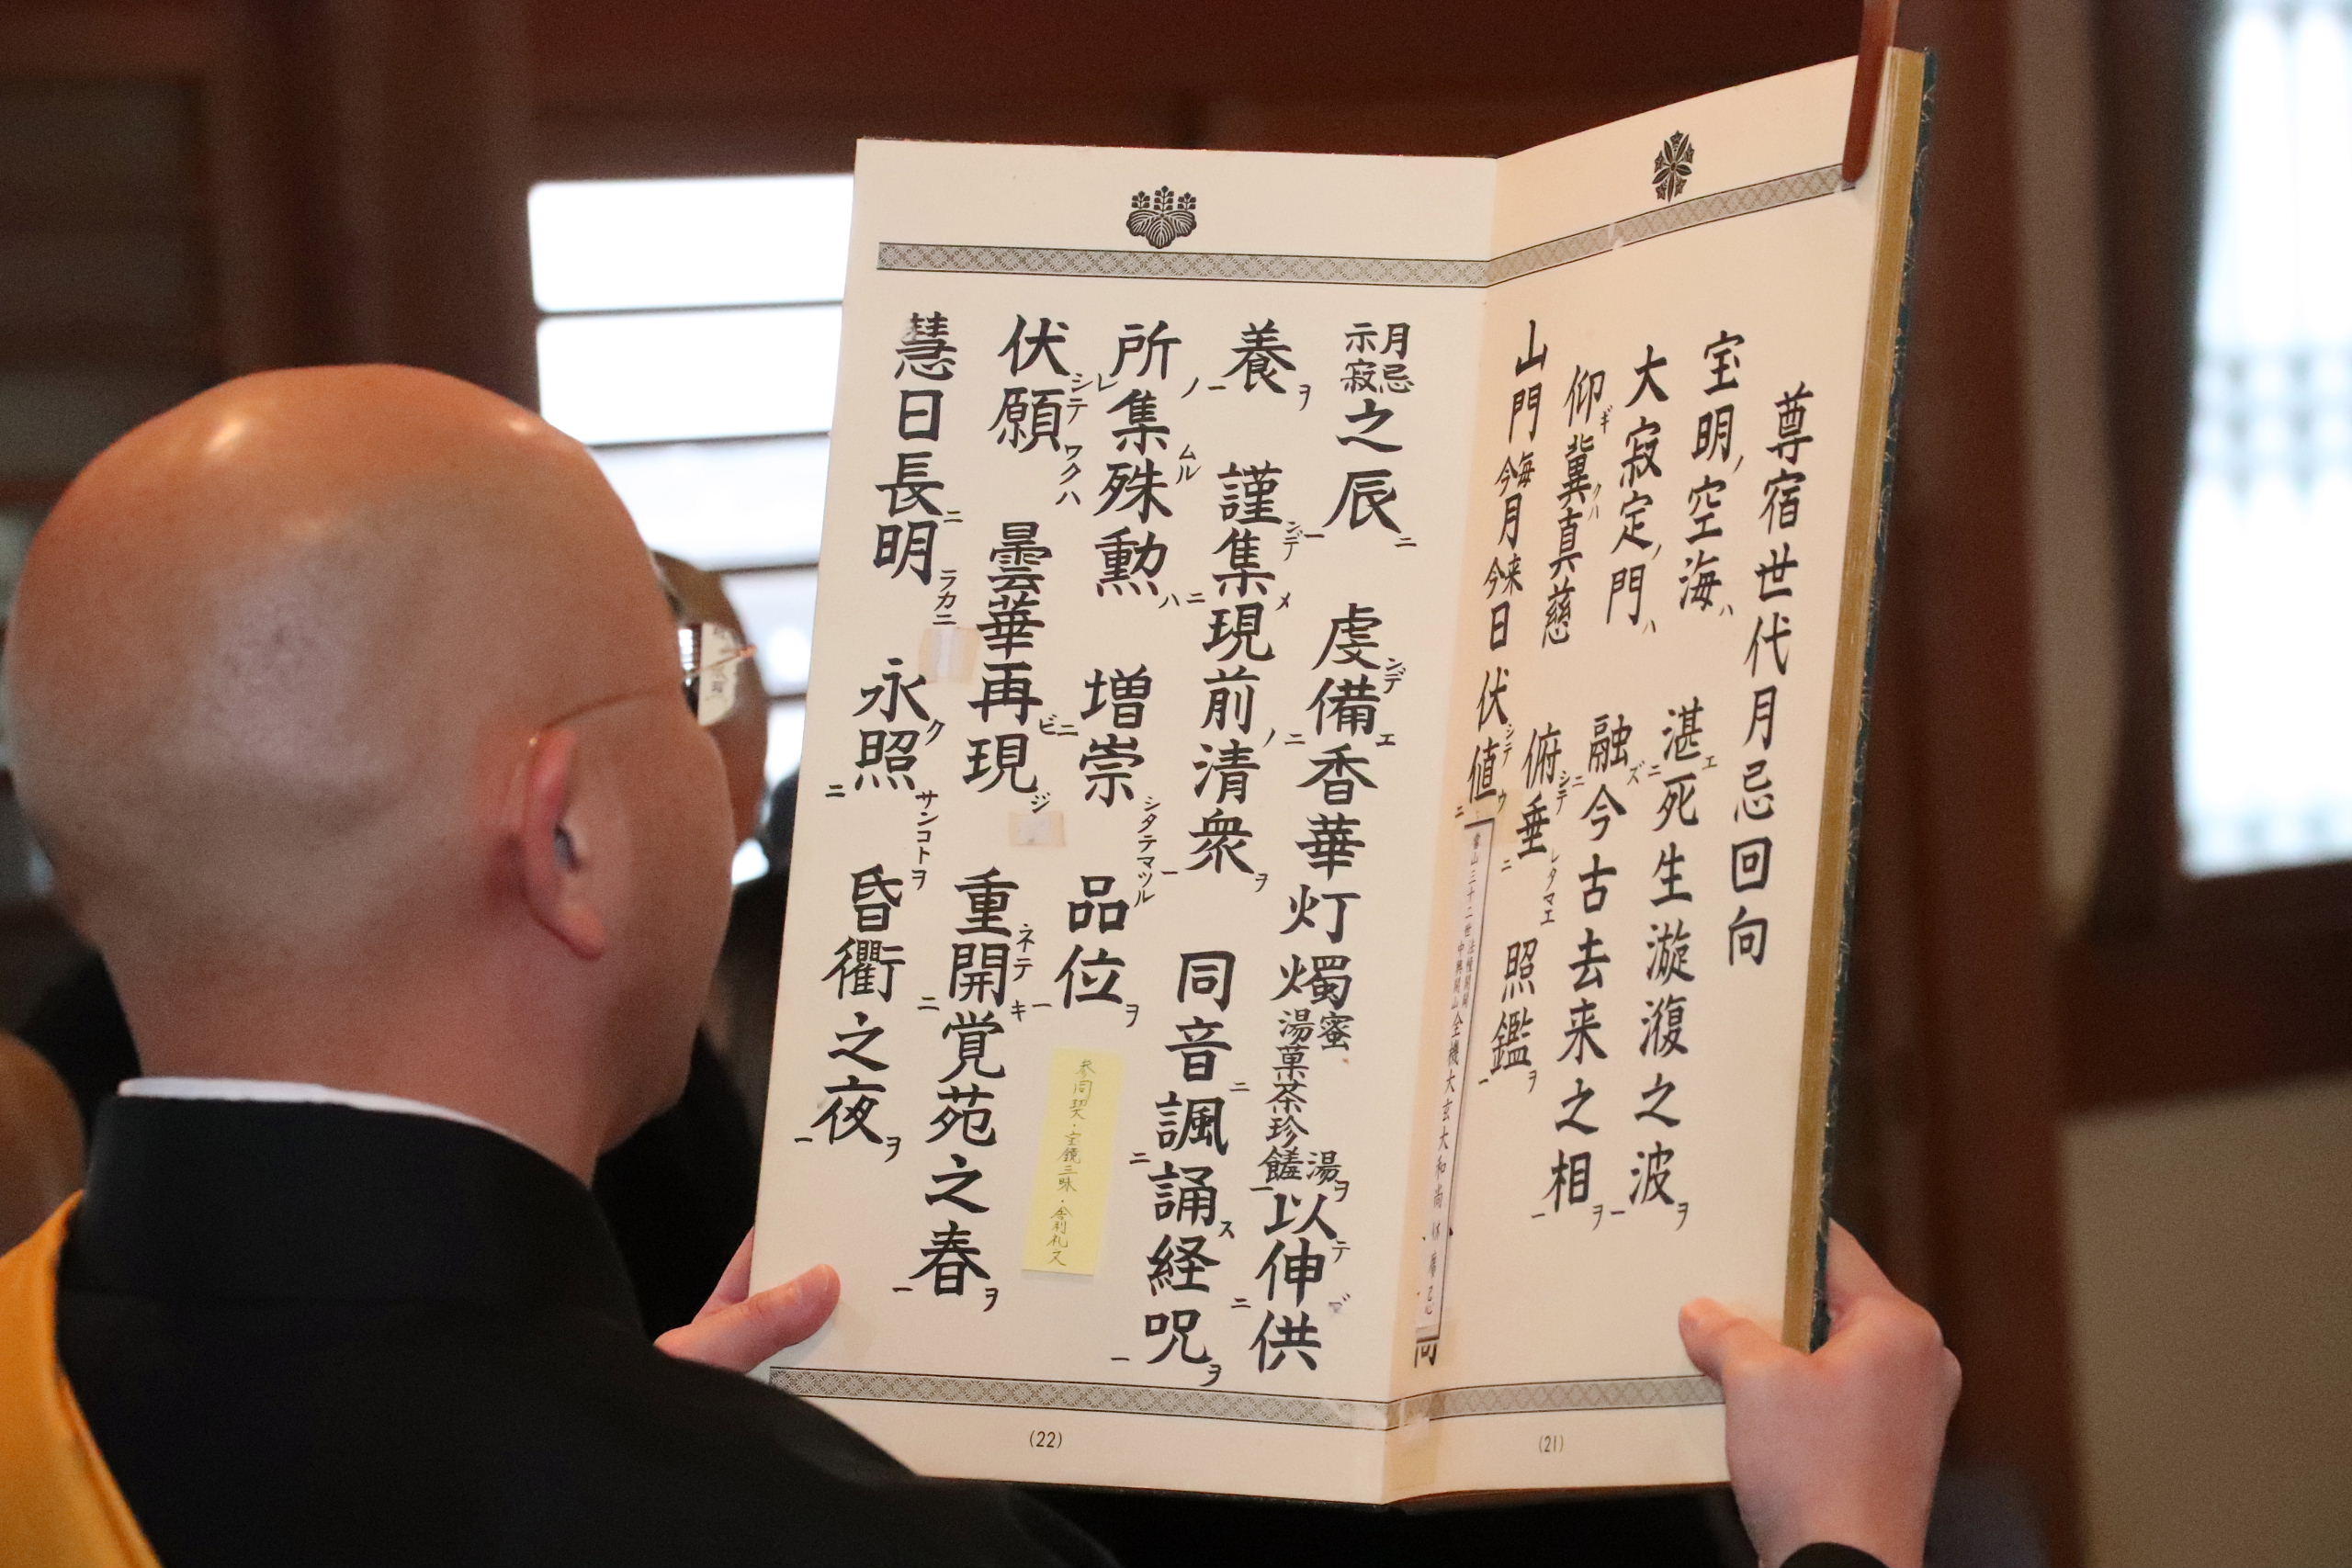 尊宿世代月忌回向
宝明ノ空海ハ 湛エ死生漩澓之波ヲ
大寂定ノ門ハ 融ズ今古去来之相ヲ
仰ギ冀クハ真慈 俯シテ垂レタマエ照鑑ヲ
山門毎今月今来日伏シテ値ウ
全機大玄大和尚
月忌示寂之辰ニ 虔ンデ備エ香華灯燭蜜湯菓茶珍饈湯ヲ以テ伸供
養ヲ 謹ンデ集メ現前ノ清衆ヲ 同音ニ諷誦ス経呪ヲ
所ノ集ムル殊勲ハ 増崇シタテマツル品位ヲ
参同契・宝鏡三昧・舎利礼文
伏シテ願ワクハ 曇華再ビ現ジ 重ネテ開キ覚苑之春ヲ
慧日長明ラカニ 永ク照サンコトヲ昏衢之夜ヲ
(22)
(21)